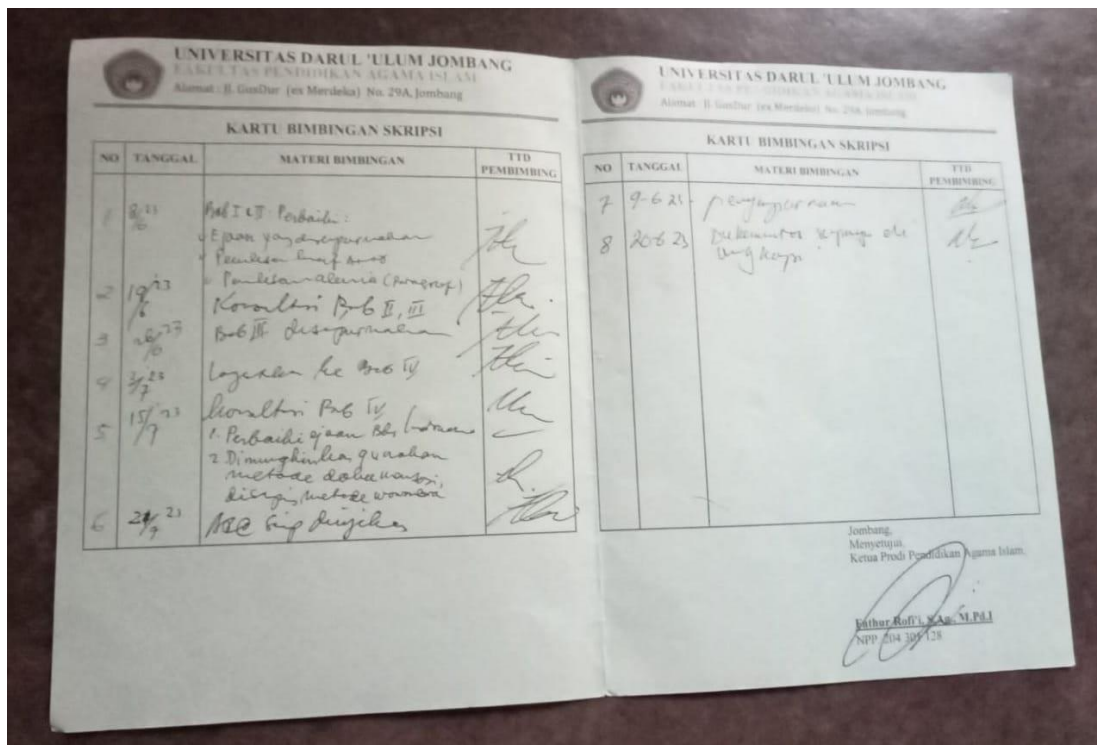 UNIVERSITAS DARUL 'ULUM JOMBANG
FAKULTAS PENDIDIKAN AGAMA ISLAM
Alamat : Jl. GusDur (ex Merdeka) No. 29A, Jombang
KARTU BIMBINGAN SKRIPSI
NO TANGGAL MATERI BIMBINGAN TTD PEMBIMBING
1 8/6 23 Bab I & II Perbaiki :
Ejaan yang disempurnakan
Penulisan huruf
Penulisan alenia (Paragraf)
2 19/6 23 Konsultasi Bab II, III
3 26/6 23 Bab III disempurnakan
4 3/7 23 ke Bab IV
5 15/7 23 Konsultasi Bab IV
1. Perbaiki ejaan Bhs Indonesia
2. Dimungkinkan gunakan
metode dokumentasi,
metode
6 23 ACC Siap diujikan
UNIVERSITAS DARUL 'ULUM JOMBANG
FAKULTAS PENDIDIKAN AGAMA ISLAM
Alamat : Jl. GusDur (ex Merdeka) No. 29A, Jombang
KARTU BIMBINGAN SKRIPSI
NO TANGGAL MATERI BIMBINGAN TTD PEMBIMBING
7 9-6 23
8 20-6 23
Jombang,
Menyetujui,
Ketua Prodi Pendidikan Agama Islam.
Fathur Rofi'i, S.Ag., M.Pd.I
NPP. 204 301 128